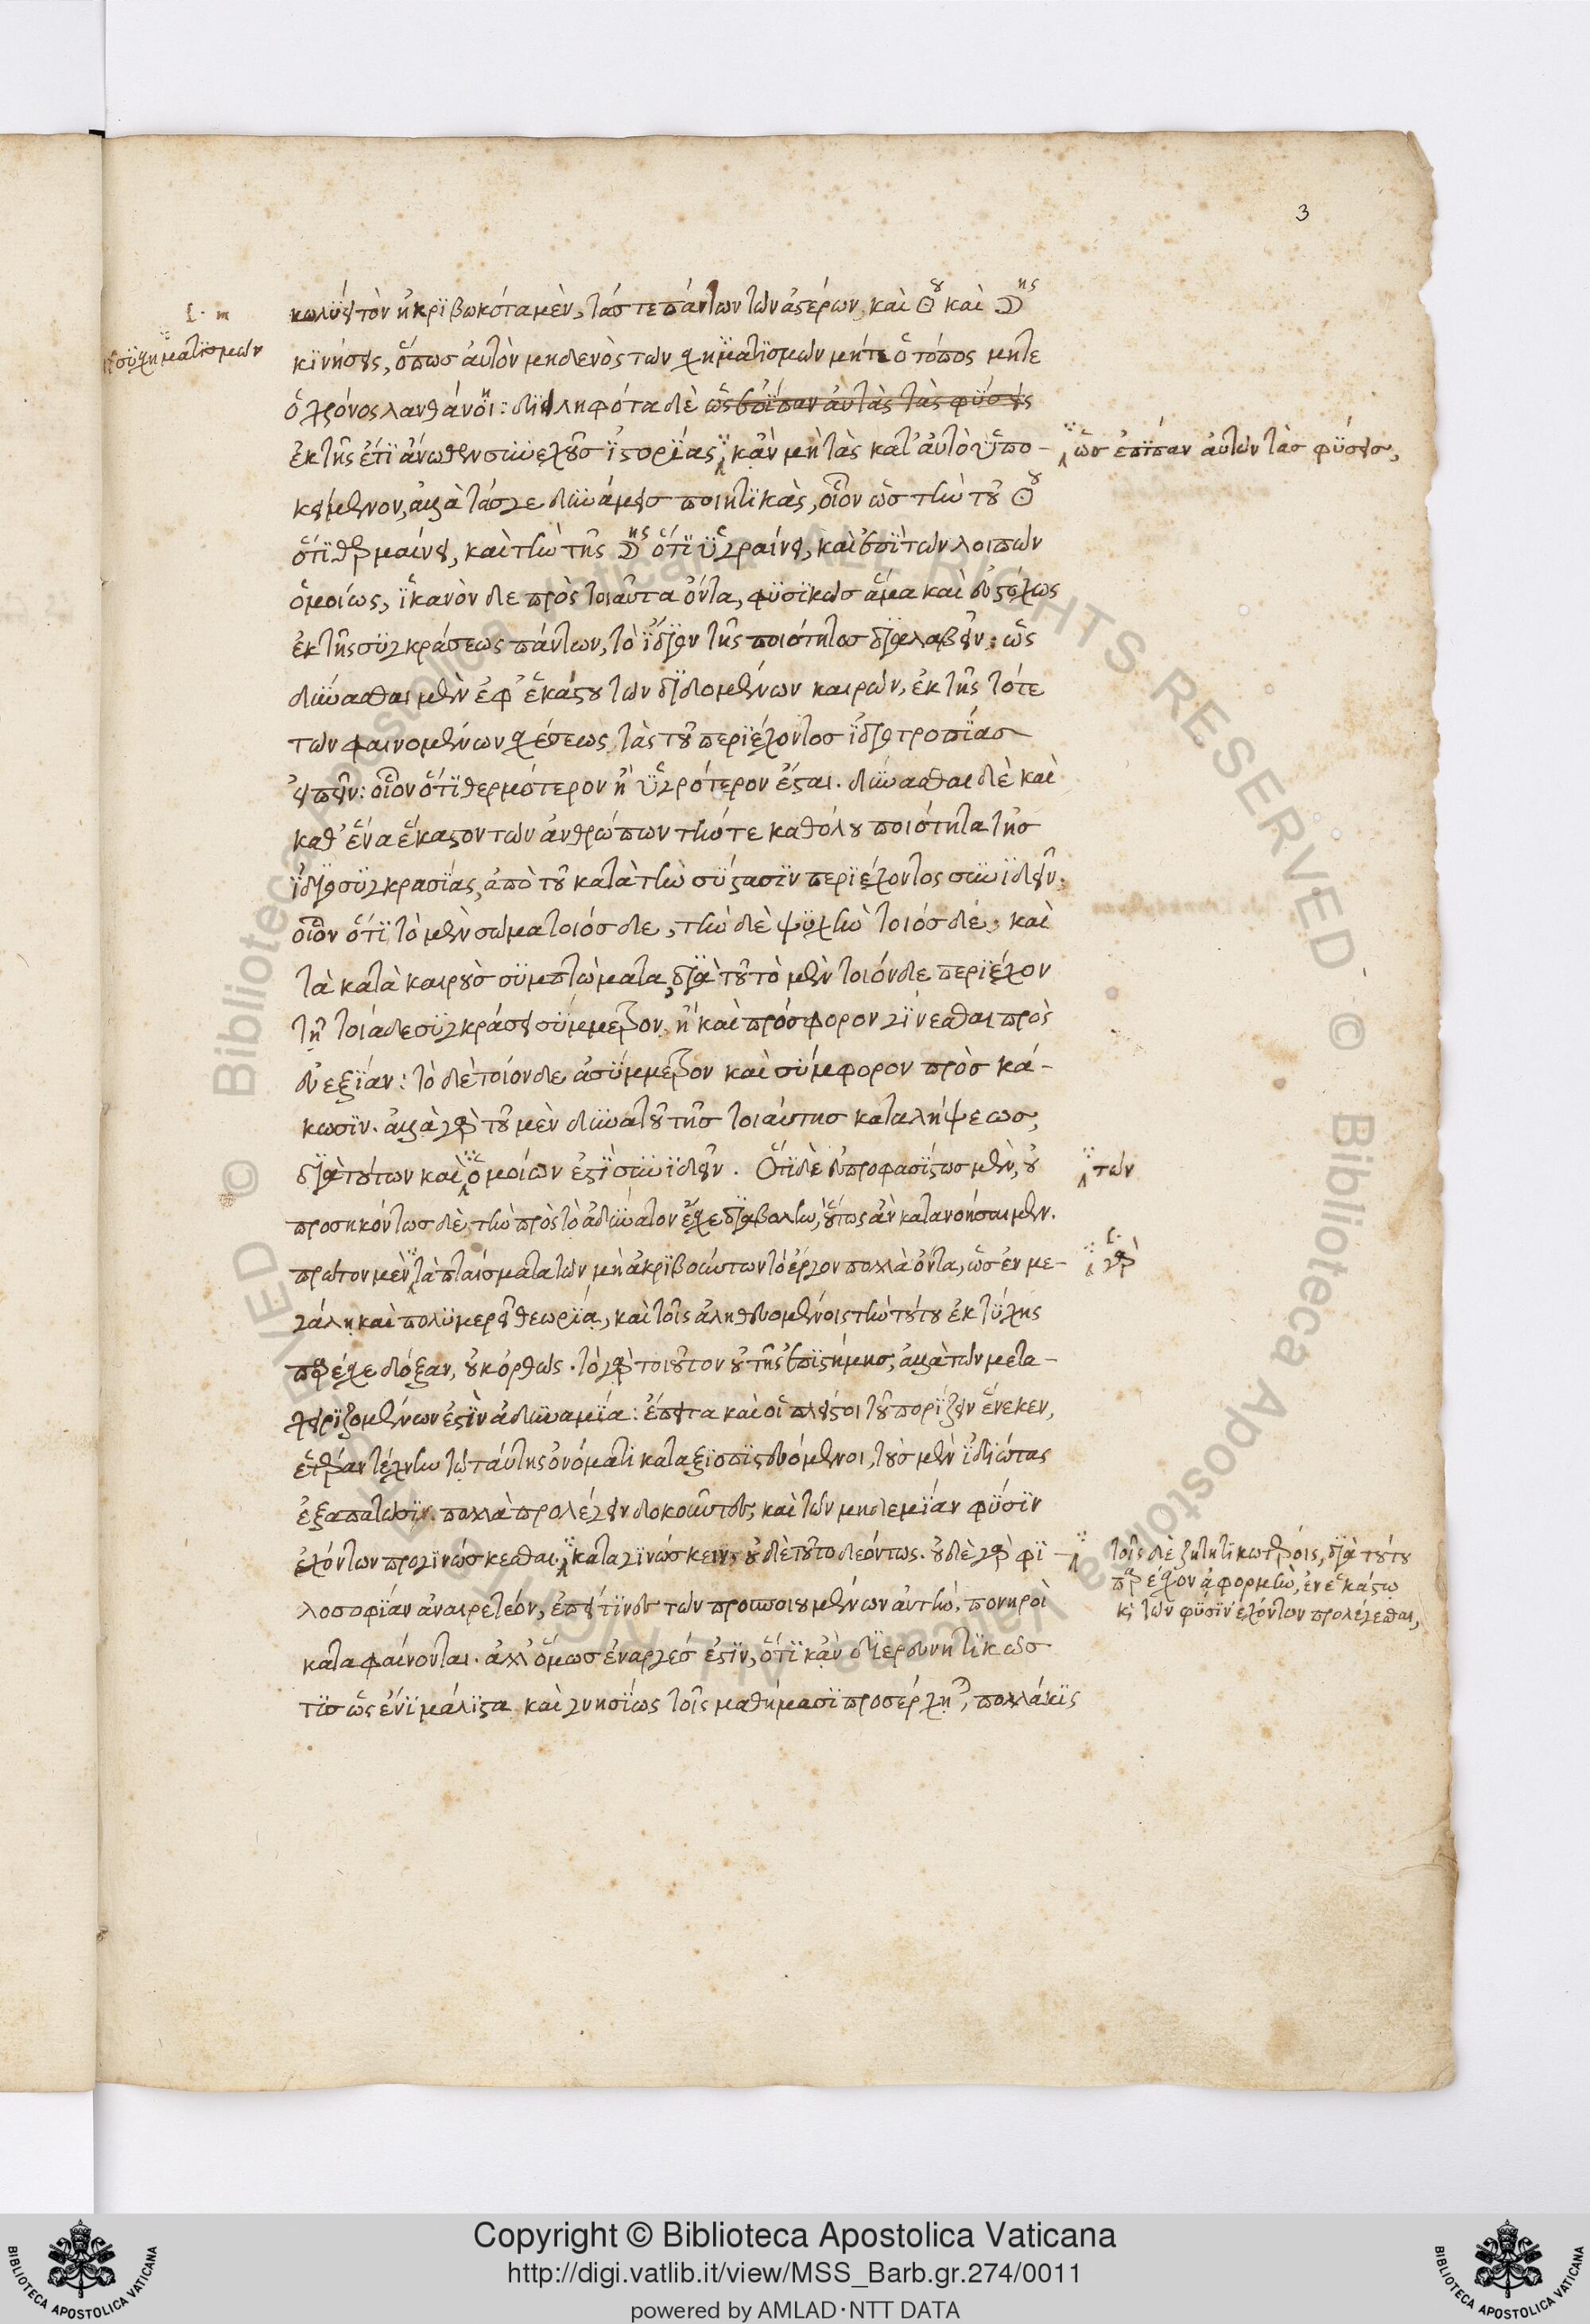 3
κωλύει τὸν ἠκριβωκότα μὲν, τάς τε πάντων τῶν ἀστέρων, καὶ ☉ου καὶ ☽ης
συσχηματισμῶν
κινήσεις, ὅπως αὐτὸν μηδενὸς τῶν σχηματισμῶν μήτε ὁ τόπος μήτε
ὁ χρόνος λανθάνοι: διειληφότα δὲ ὡς ἐπίπαν αὐτὰς τὰς φύσεις
ἐκ τῆς ἔτι ἄνωθεν συνεχοῦς ἱστορίας, κἂν μὴ τὰς κατ' αὐτὸ ὑπο-
ὡς ἐπίπαν αὐτῶν τὰς φύσεις,
κείμενον, ἀλλὰ τάς γε δυνάμεις ποιητικὰς, οἷον ὡς τὴν τοῦ ☉ου
ὅτι θερμαίνει, καὶ τὴν τῆς ☽ης ὅτι ὑγραίνει, καὶ ἐπὶ τῶν λοιπῶν
ὁμοίως, ἱκανὸν δὲ πρὸς τοιαῦτα ὄντα, φυσικῶς ἅμα καὶ εὐστόχως
ἐκ τῆς συγκράσεως πάντων, τὸ ἴδιον τῆς ποιότητος διαλαβεῖν: ὡς
δύνασθαι μὲν ἐφ' ἑκάστου τῶν διδομένων καιρῶν, ἐκ τῆς τότε
τῶν φαινομένων σχέσεως, τὰς τοῦ περιέχοντος ἰδιοτροπίας
εἰπεῖν: οἷον ὅτι θερμότερον ἢ ὑγρότερον ἔσται. δύνασθαι δὲ καὶ
καθ' ἕνα ἕκαστον τῶν ἀνθρώπων τήν τε καθόλου ποιότητα τῆς
ἰδιοσυγκρασίας, ἀπὸ τοῦ κατὰ τὴν σύστασιν περιέχοντος συνιδεῖν.
οἷον ὅτι τὸ μὲν σῶμα τοιόσδε, τὴν δὲ ψυχὴν τοιόσδε: καὶ
τὰ κατὰ καιροὺς συμπτώματα, διὰ τοῦ τὸ μὲν τοιόνδε περιέχον
τῇ τοιᾷδε συγκράσει σύμμετρον, ἢ καὶ πρόσφορον γίνεσθαι πρὸς
εὐεξίαν: τὸ δὲ τοιόνδε ἀσύμμετρον καὶ σύμφορον πρὸς κά-
κωσιν. ἀλλὰ γὰρ τοῦ μὲν δυνατοῦ τῆς τοιαύτης καταλήψεως,
διὰ τούτων καὶ ὁμοίων ἐστὶ συνιδεῖν. Ὅτι δὲ εὐπροφασίστως μὲν, οὐ
τῶν
προσηκόντως δὲ, τὴν πρὸς τὸ ἀδύνατον ἔσχε διαβολὴν, οὕτως ἂν κατανοήσαιμεν.
πρῶτον μὲν τὰ πταίσματα τῶν μὴ ἀκριβούντων τὸ ἔργον πολλὰ ὄντα, ὡς ἐν με-
γὰρ
γάλῃ καὶ πολυμερεῖ θεωρίᾳ, καὶ τοῖς ἀληθευομένοις τὴν τούτου ἐκ τύχης
παρέσχε δόξαν, οὐκ ὀρθῶς. τὸ γὰρ τοιοῦτον οὐ τῆς ἐπιστήμης, ἀλλὰ τῶν μετα-
χειριζομένων ἐστὶν ἀδυναμία: ἔπειτα καὶ οἱ πλεῖστοι τοῦ πορίζειν ἕνεκεν,
ἑτέραν τέχνην τῷ ταύτης ὀνόματι καταξιοπιστευόμενοι, τοὺς μὲν ἰδιώτας
ἐξαπατῶσιν. πολλὰ προλέγειν δοκοῦντες, καὶ τῶν μηδεμίαν φύσιν
ἐχόντων προγινώσκεσθαι. καταγινώσκειν, οὐδὲ τοῦτο δεόντως. οὐδὲ γὰρ φι-
τοῖς δὲ ζητητικωτέροις, διὰ τούτου
παρέσχον ἀφορμὴν, ἐν ἑκάστῳ
κὶ τῶν φύσιν ἐχόντων προλέγεσθαι,
λοσοφίαν ἀναιρετέον, ἐπεί τινες τῶν προσποιουμένων αὐτὴν, πονηροὶ
καταφαίνονται. ἀλλ' ὅμως ἐναργές ἐστιν, ὅτι κἂν διερευνητικῶς
τὶς ὡς ἔνι μάλιστα καὶ γνησίως τοῖς μαθήμασι προσέρχηται, πολλάκις
Copyright © Biblioteca Apostolica Vaticana
http://digi.vatlib.it/view/MSS_Barb.gr.274/0011
powered by AMLAD·NTT DATA